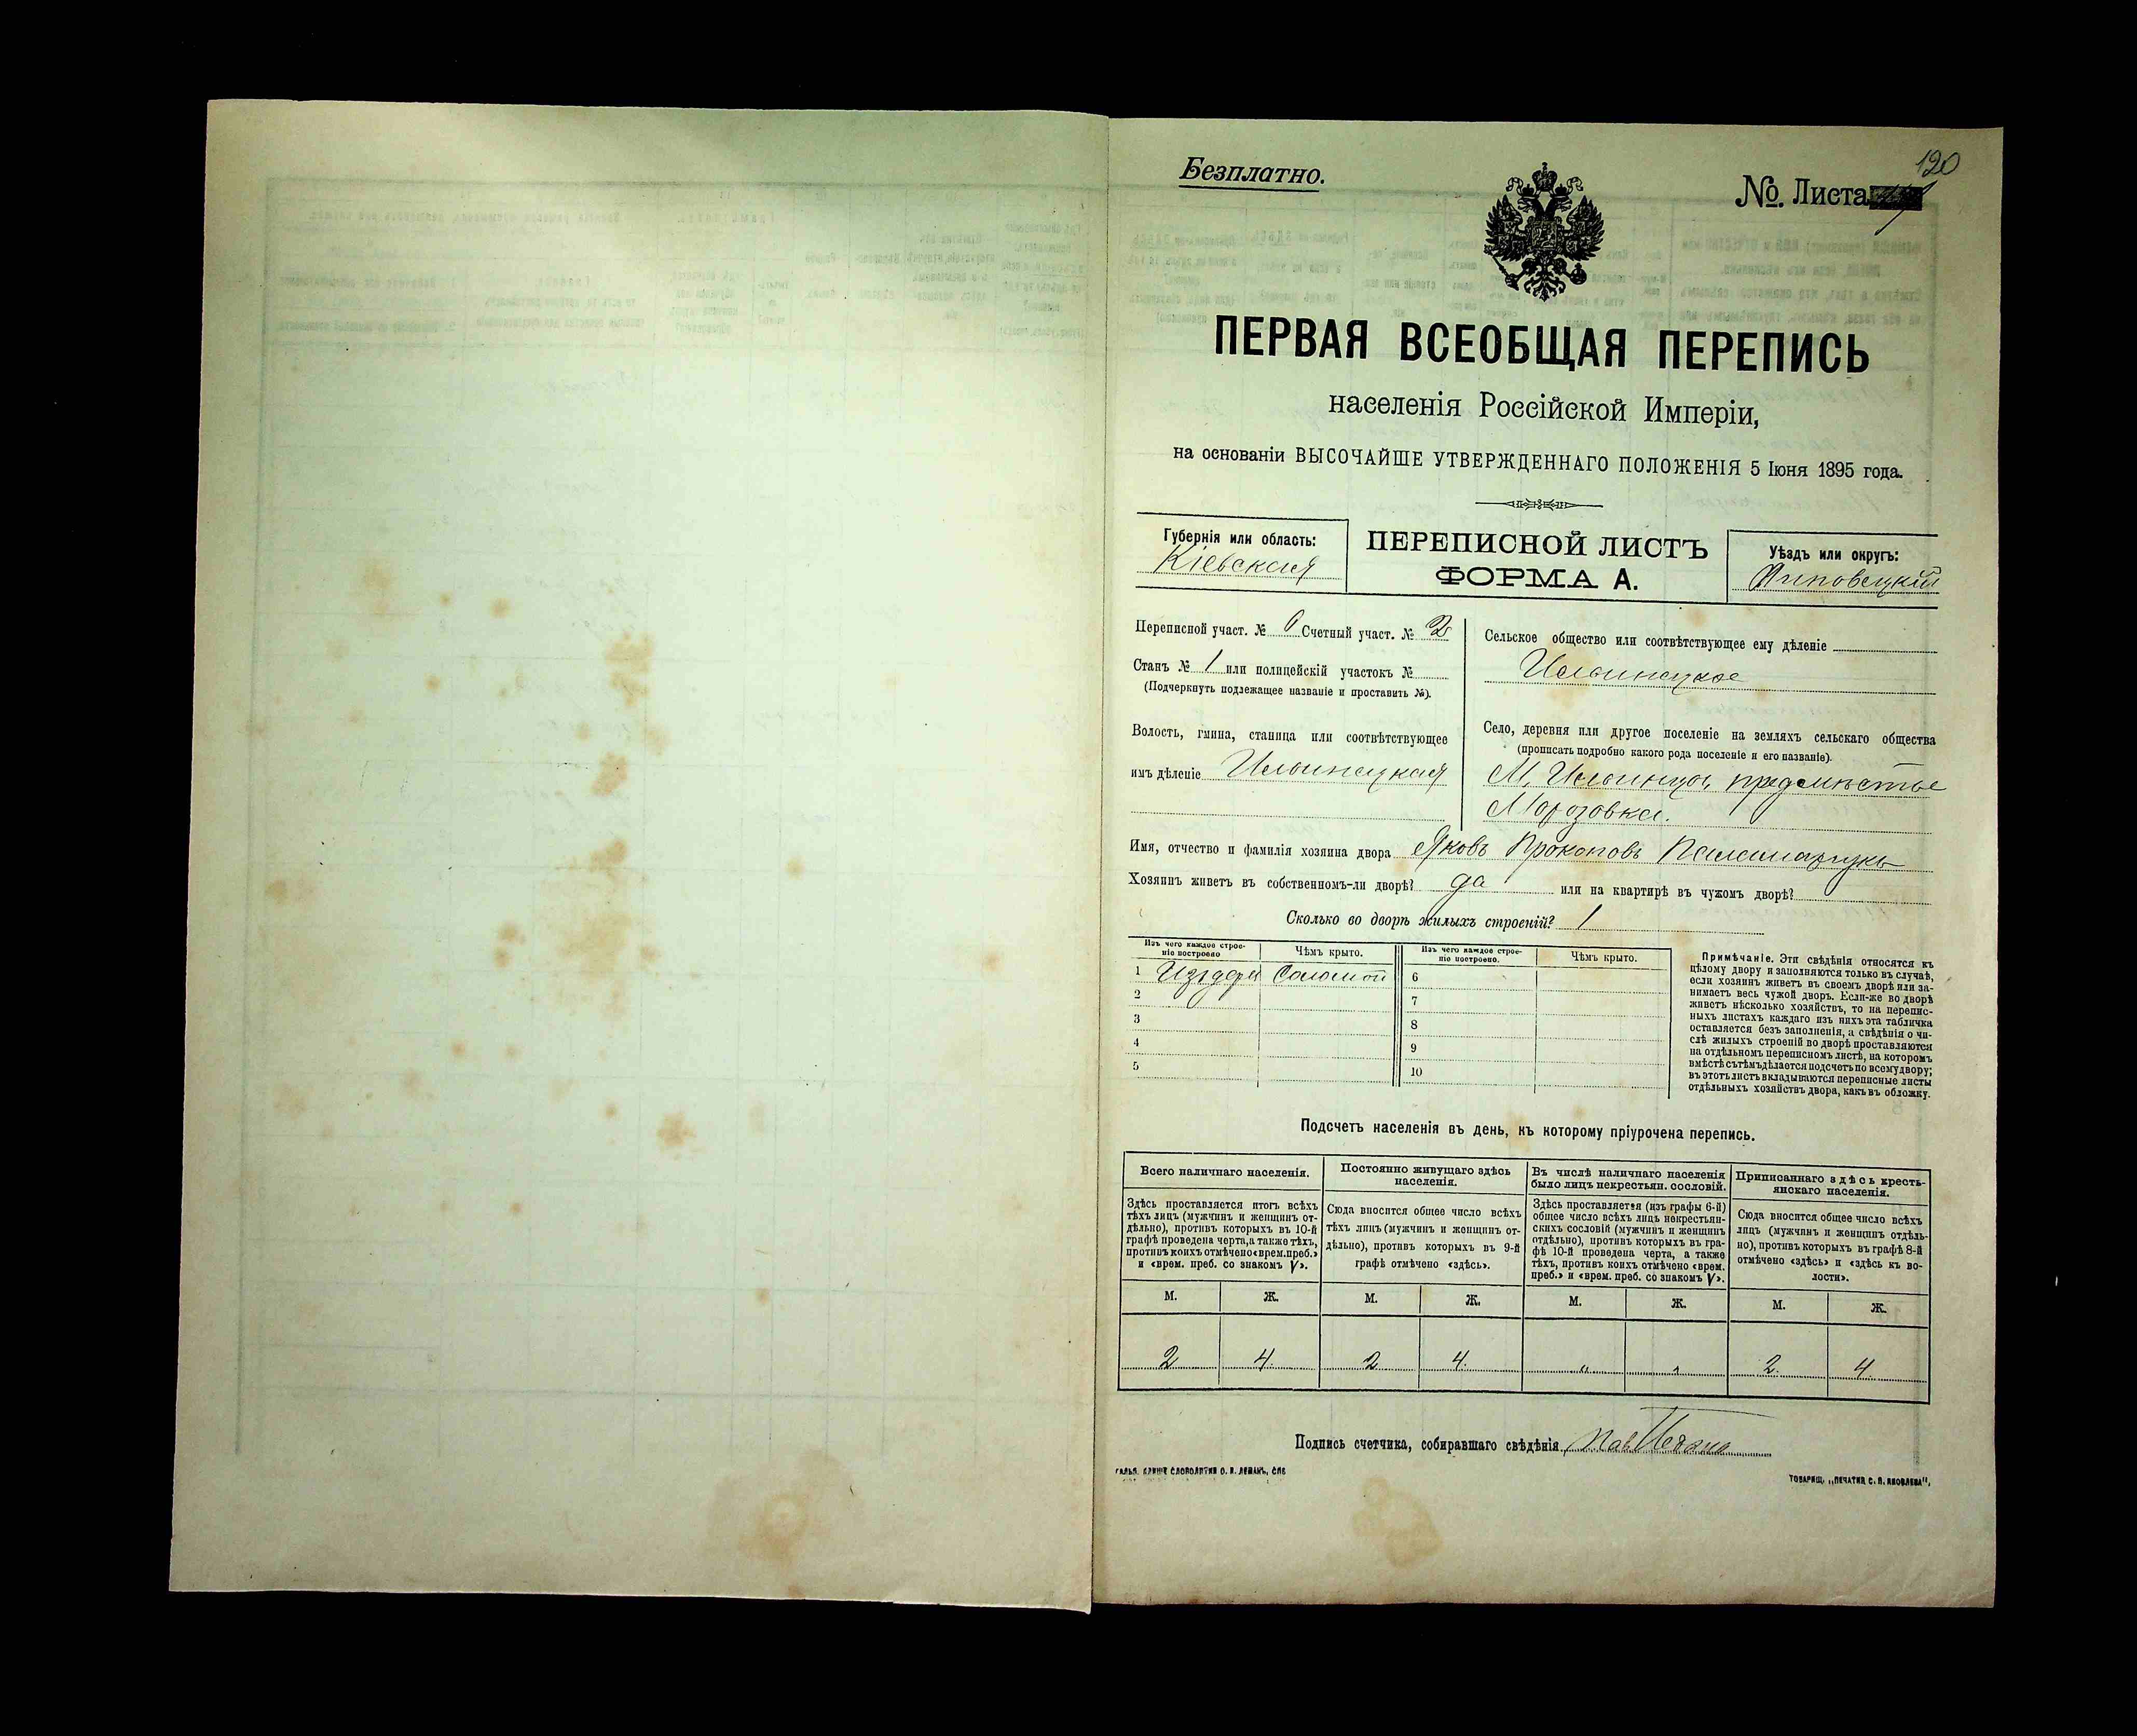 120
Безплатно.
№ Листа
ПЕРВАЯ ВСЕОБЩАЯ ПЕРЕПИСЬ
населенія Россійской Имперіи,
на основаніи ВЫСОЧАЙШЕ УТВЕРЖДЕННАГО ПОЛОЖЕНІЯ 5 Іюня 1895 года.
Губернія или область:
Кіевская
ПЕРЕПИСНОЙ ЛИСТЪ
ФОРМА А.
Уѣздъ или округъ:
Липовецкій
Переписной участ. № Счетный участ. № 2
Станъ № 1 или полицейскій участокъ №
(Подчеркнуть подлежащее названіе и проставить №).
Волость, гмина, станица или соотвѣтствующее
имъ дѣленіе Ильинецкая
Сельское общество или соотвѣтствующее ему дѣленіе
Ильинецкое
Село, деревня или другое поселеніе на земляхъ сельскаго общества
(прописать подробно какого рода поселеніе и его названіе).
М. Ильинцы, предмѣстье
Морозовка.
Имя, отчество и фамилія хозяина двора Яковъ Прокоповъ Паламарчукъ
Хозяинъ живетъ въ собственномъ-ли дворѣ? да или на квартирѣ въ чужомъ дворѣ?
Сколько во дворѣ жилыхъ строеній? 1
Изъ чего каждое строе-
ніе построено
Чѣмъ крыто.
Изъ чего каждое строе-
ніе построено.
Чѣмъ крыто.
1 Изъ дерева Соломой 6
2 7
3 8
4 9
5 10
Примѣчаніе. Эти свѣдѣнія относятся къ
цѣлому двору и заполняются только въ случаѣ,
если хозяинъ живетъ въ своемъ дворѣ или за-
нимаетъ весь чужой дворъ. Если-же во дворѣ
живетъ нѣсколько хозяйствъ, то на перепис-
ныхъ листахъ каждаго изъ нихъ эта табличка
оставляется безъ заполненія, а свѣдѣнія о чи-
слѣ жилыхъ строеній во дворѣ проставляются
на отдѣльномъ переписномъ листѣ, на которомъ
вмѣстѣ съ тѣмъ дѣлается подсчетъ по всему двору;
въ этотъ листъ вкладываются переписные листы
отдѣльныхъ хозяйствъ двора, какъ въ обложку.
Подсчетъ населенія въ день, къ которому пріурочена перепись.
Всего наличнаго населенія.
Здѣсь проставляется итогъ всѣхъ
тѣхъ лицъ (мужчинъ и женщинъ от-
дѣльно), противъ которыхъ въ 10-й
графѣ проведена черта, а также тѣхъ,
противъ коихъ отмѣчено «врем. преб.»
и «врем. преб. со знакомъ V».
Постоянно живущаго здѣсь
населенія.
Сюда вносится общее число всѣхъ
тѣхъ лицъ (мужчинъ и женщинъ от-
дѣльно), противъ которыхъ въ 9-й
графѣ отмѣчено «здѣсь».
Въ числѣ наличнаго населенія
было лицъ некрестьян. сословій.
Здѣсь проставляется (изъ графы 6-й)
общее число всѣхъ лицъ некрестьян-
скихъ сословій (мужчинъ и женщинъ
отдѣльно), противъ которыхъ въ гра-
фѣ 10-й проведена черта, а также
тѣхъ, противъ коихъ отмѣчено «врем.
преб.» и «врем. преб. со знакомъ V».
Приписаннаго здѣсь кресть-
янскаго населенія.
Сюда вносится общее число всѣхъ
лицъ (мужчинъ и женщинъ отдѣль-
но), противъ которыхъ въ графѣ 8-й
отмѣчено «здѣсь» и «здѣсь къ во-
лости».
М. Ж. М. Ж. М. Ж. М. Ж.
2 4. 2 4. „ „ 2. 4.
Подпись счетчика, собиравшаго свѣдѣнія
СЛОВОЛИТНИ О. И. ЛЕМАНЪ, СПБ
ТОВАРИЩ. „ПЕЧАТНЯ С. П. ЯКОВЛЕВА".